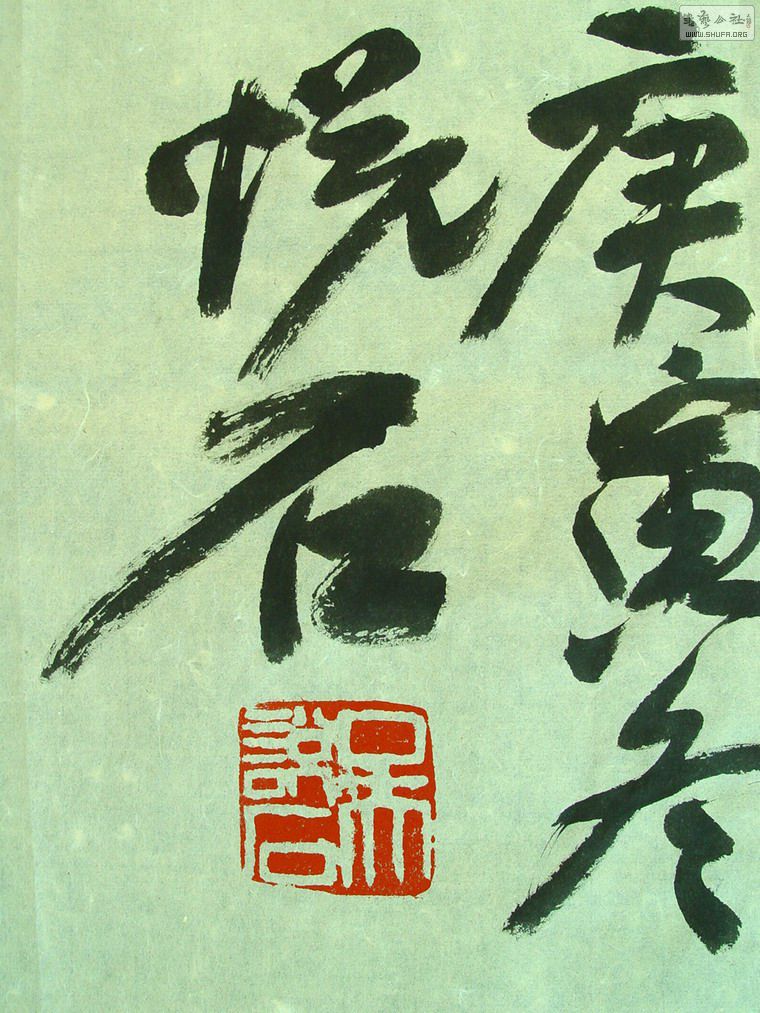 書藝公社
WWW.SHUFA.ORG
庚寅冬
悦石
吳說石